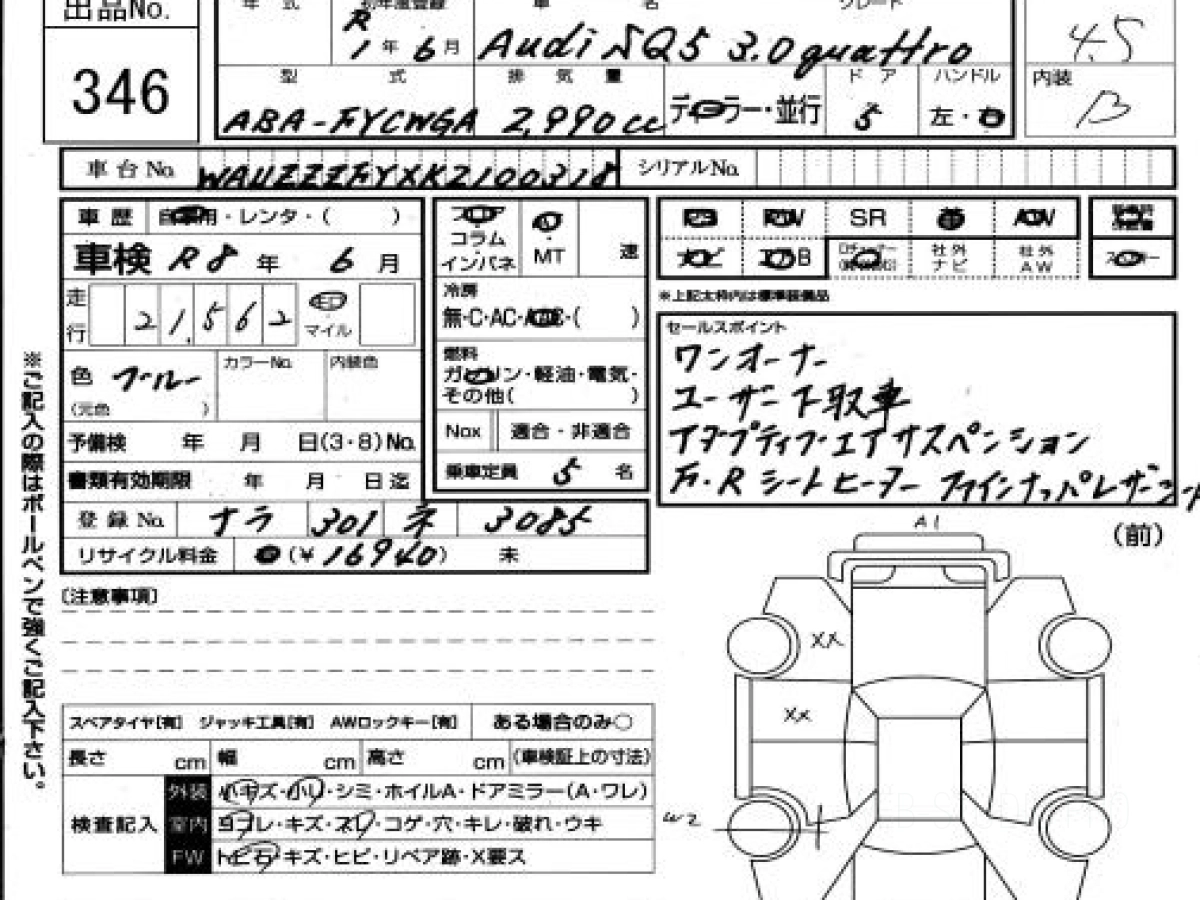 出品No.
346
年 式
初年度登録
車 名
グレード
R
1 年 6 月
Audi SQ5 3.0 quattro
4.5
型 式
排 気 量
ディーラー・並行
ドア
ハンドル
内装
ABA-FYCWGA
2,990cc
5
左・右
B
車台No.
WAUZZZFYXK2100318
シリアルNo.
車歴
自家用・レンタ・( )
車検 R8 年 6 月
走行
21,562
マイル
色 ブルー
(元色 )
カラーNo.
内装色
予備検 年 月 日(3・8)No.
書類有効期限 年 月 日迄
登録No. ナラ 301 ネ 3085
リサイクル料金 (¥16940) 未
フロア
コラム
インパネ
MT
速
冷房
無・C・AC・AAC・( )
燃料
ガソリン・軽油・電気・
その他( )
Nox 適合・非適合
乗車定員 5 名
PS
PW
SR
革
AW
ナビ
エアB
社外ナビ
社外AW
※上記太枠内は標準装備品
セールスポイント
ワンオーナー
ユーザー下取車
アダプティブエアサスペンション
F・Rシートヒーター ファインナッパレザーシート
(前)
A1
XX
XX
W2
[注意事項]
スペアタイヤ[有] ジャッキ工具[有] AWロックキー[有] ある場合のみ○
長さ cm 幅 cm 高さ cm (車検証上の寸法)
検査記入
外装 小キズ・小U・シミ・ホイルA・ドアミラー(A・ワレ)
室内 ヨゴレ・キズ・スレ・コゲ・穴・キレ・破れ・ウキ
FW トビ石・キズ・ヒビ・リペア跡・X要ス
※ご記入の際はボールペンで強くご記入下さい。